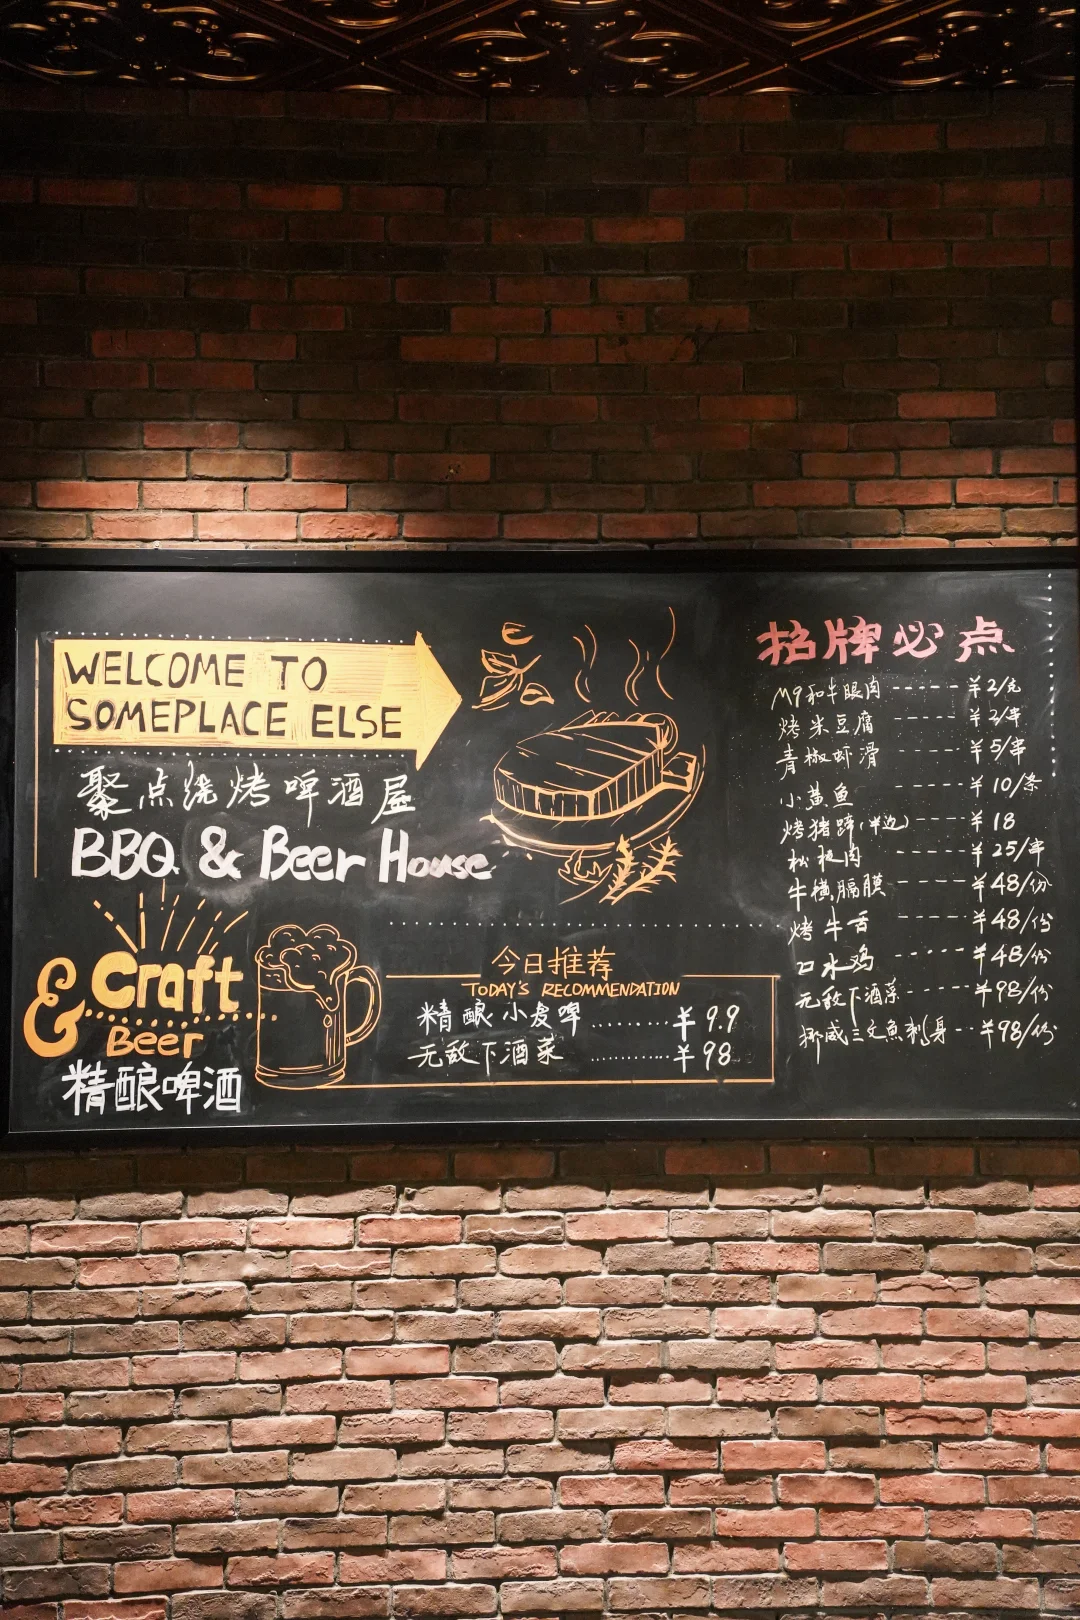 WELCOME TO
SOMEPLACE ELSE
聚点烧烤啤酒屋
BBQ & Beer House
& Craft
Beer
精酿啤酒
今日推荐
TODAY'S RECOMMENDATION
精酿小麦啤 ......... ¥9.9
无敌下酒菜 ............ ¥98
招牌必点
M9和牛眼肉 ----- ¥2/克
烤米豆腐 ---- ¥2/串
青椒虾滑 ---- ¥5/串
小黄鱼 ----- ¥10/条
烤猪蹄(半边) --- ¥18
松板肉 ----- ¥25/串
牛横膈膜 ---- ¥48/份
烤牛舌 ---- ¥48/份
口水鸡 ---- ¥48/份
无敌下酒菜 ---- ¥98/份
挪威三文鱼刺身 -- ¥98/份